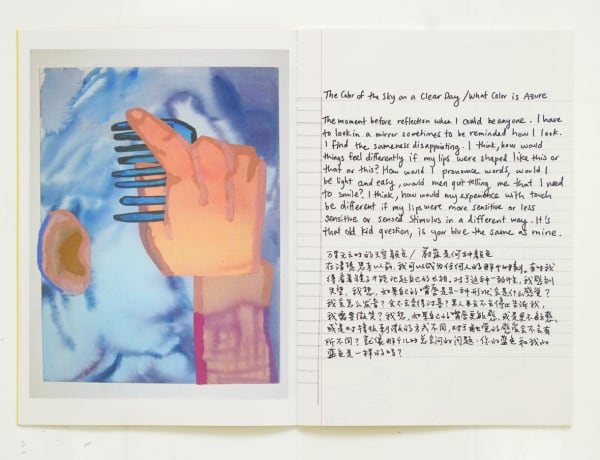 The Color of the Sky on a Clear Day / What Color is Azure
The moment before reflection when I could be anyone. I have
to look in a mirror sometimes to be reminded how I look.
I find the sameness disappointing. I think, how would
things feel differently if my lips were shaped like this or
that or this? How would I pronounce words, would I
be light and easy, would men quit telling me that I need
to smile? I think, how would my experience with touch
be different if my lips were more sensitive or less
sensitive or sensed stimulus in a different way. It's
that old kid question, is your blue the same as mine.
万里无云时的天空颜色 / 蔚蓝是何种颜色
在 我可以成为任何人的那个时刻。有时我
得看着镜子才能记起自己的长相。对于这种一致性，我感到
失望。我想，如果自己的嘴唇是另一种形状会是什么感觉？
我会怎么发音？会不会变得 ？男人会不会停止告诉我，
我需要微笑？我想，如果自己的嘴唇更敏感，或是更不敏感，
或是对 的方式不同，对于触觉的感受会不会有
所不同？就像那个儿时总会问的问题：你的蓝色和我的
蓝色是一样的吗？